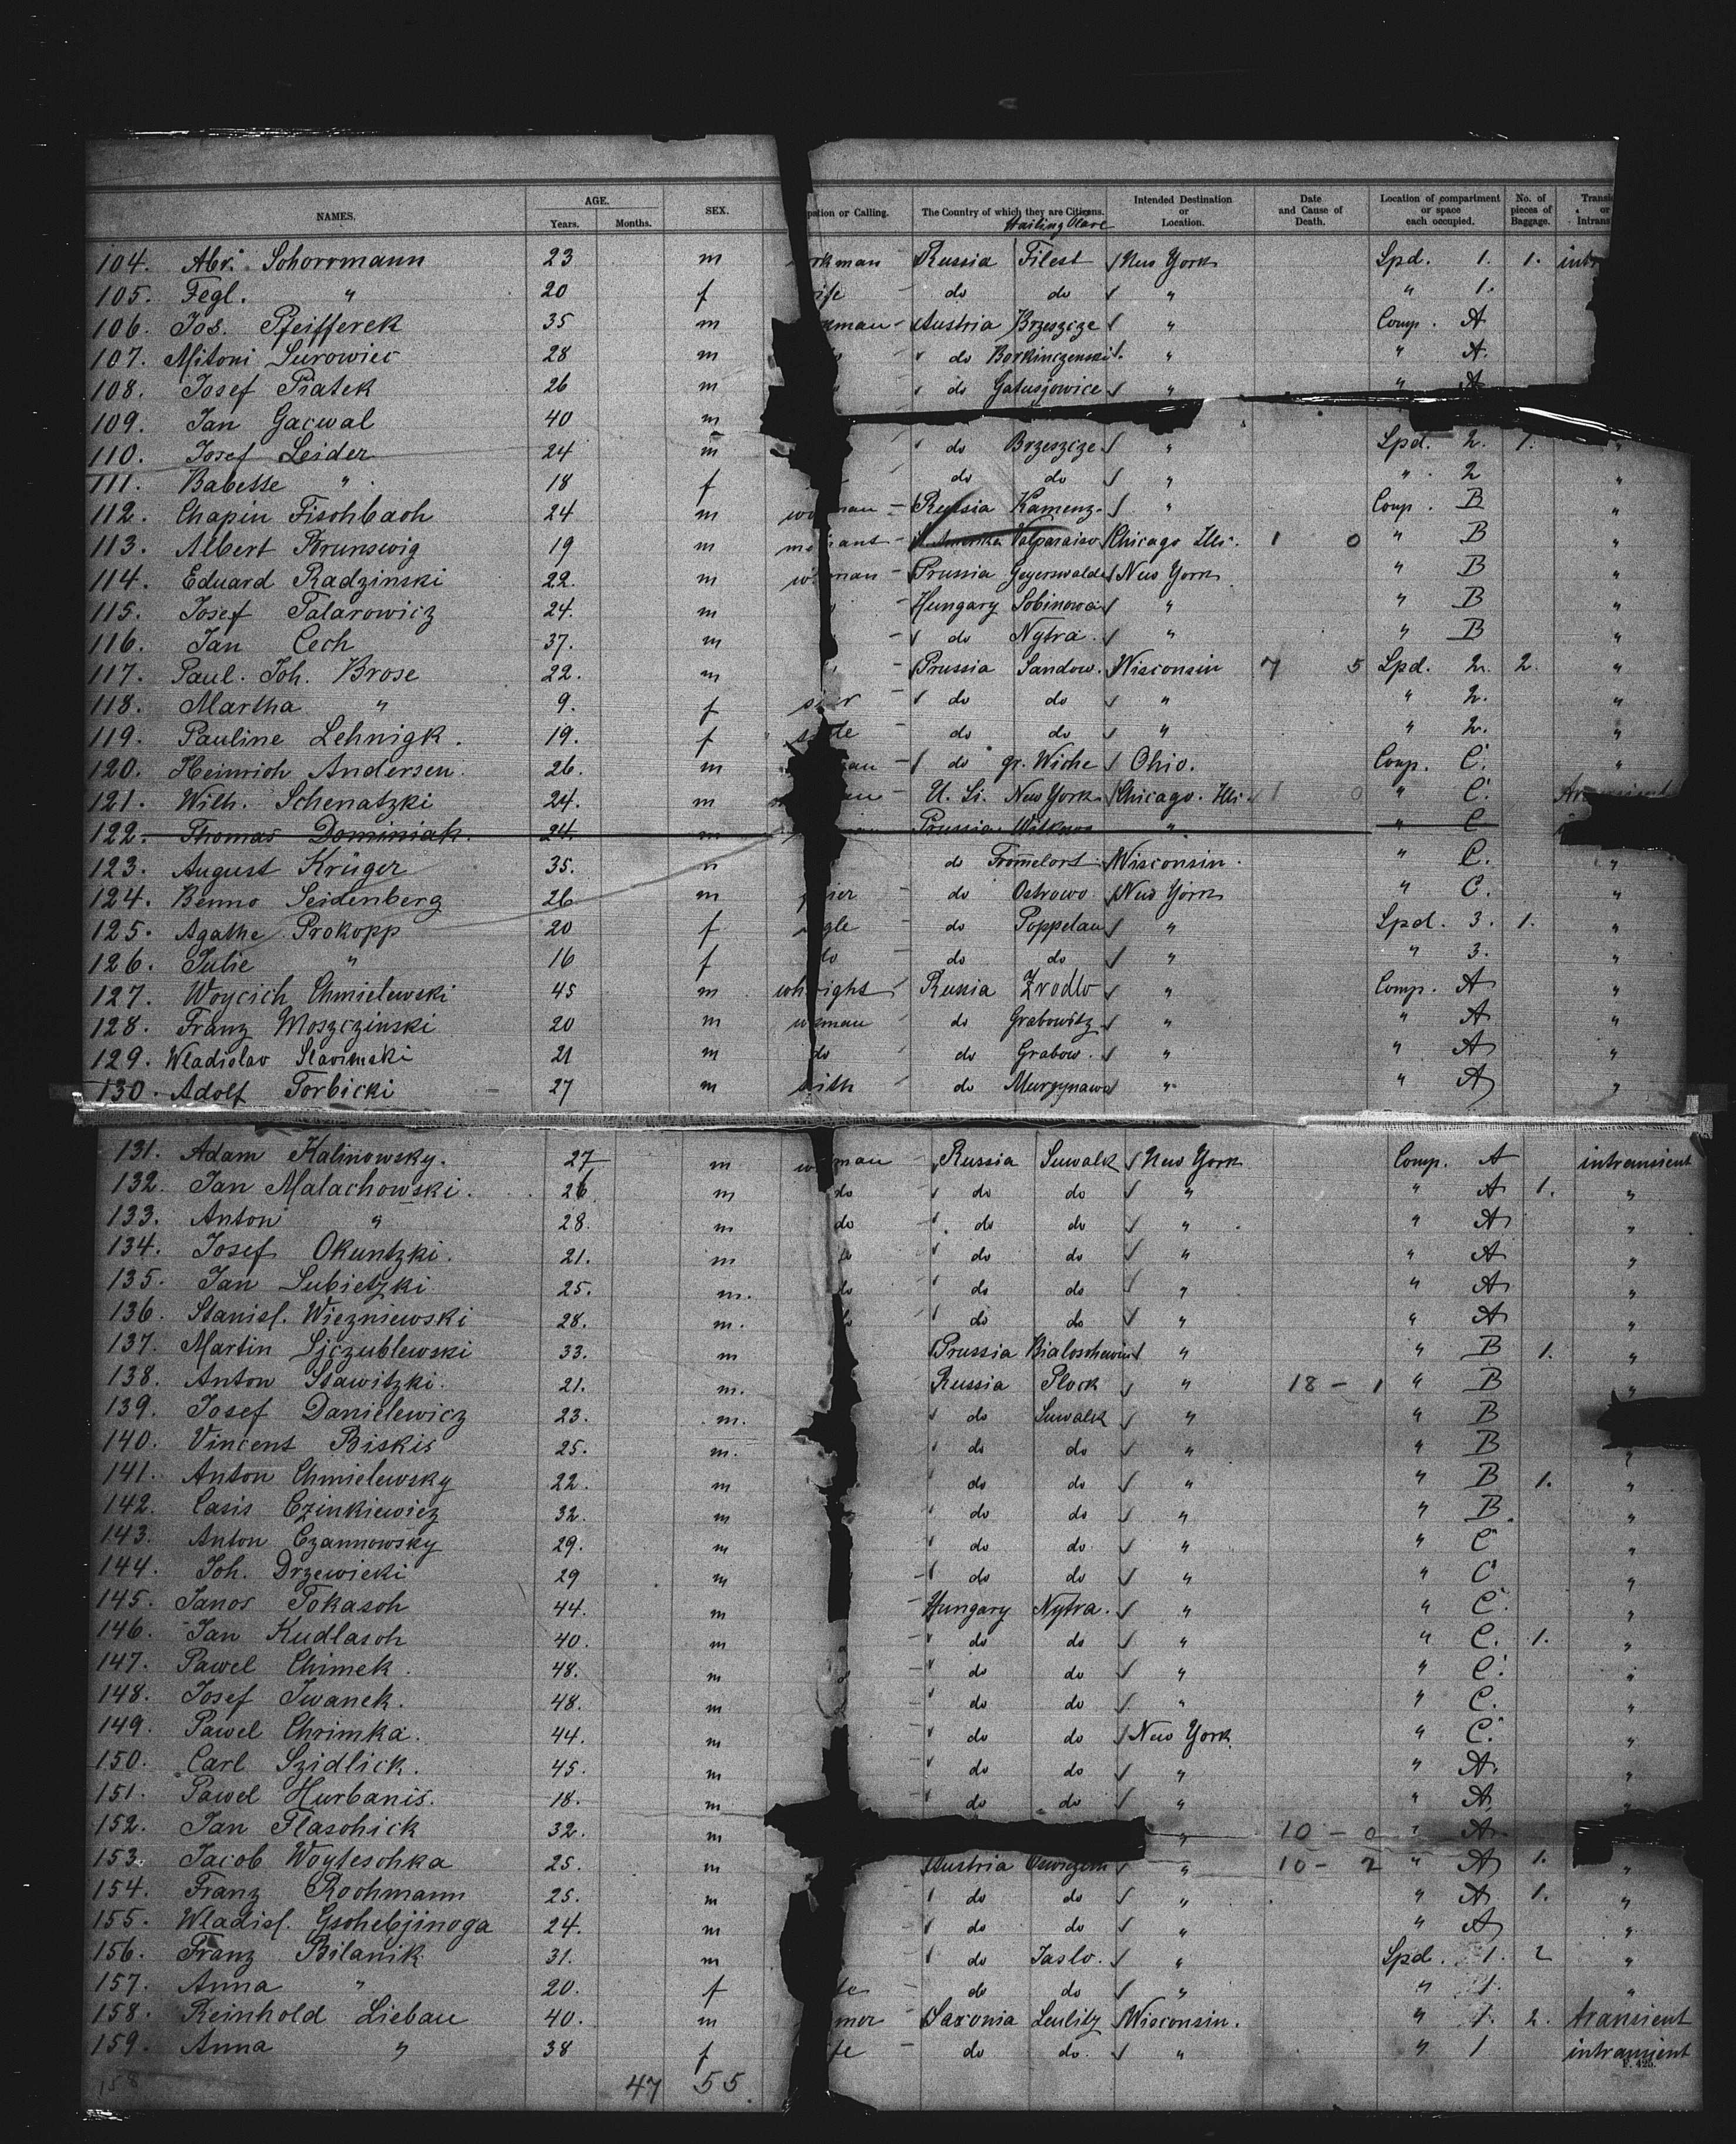 NAMES. AGE. Years. Months. SEX. pation or Calling. The Country of which they are Citizens. Intended Destination or Location. Date and Cause of Death. Location of compartment or space each occupied. No. of pieces of Baggage. Transi or Intrans
104. Abr. Schorrmann 23 m rkman Russia Filest New York Spd. 1. 1. intr
105. Fegl. " 20 f ife do do " " 1.
106. Jos. Pfeifferek 35 m kman - Austria Brzeszize " Comp. A
107. Mitoni Surowiec 28 m do " " A.
108. Josef Piatek 26 m do Gatusjowice " " A
109. Jan Gacwal 40 m
110. Josef Leider 24 m do Brzeszize " Spd. 2. 1. "
111. Babette " 18 f do do " " 2 "
112. Chapin Fischbach 24 m wo man - Russia Kamenz. " Comp. B "
113. Albert Brunswig 19 m me ant - Valparaiso Chicago Ills. 1 0 " B "
114. Eduard Radzinski 22. m w man - Prussia Geyerswalde New York " B "
115. Josef Talarowicz 24. m - Hungary Sobinowa " " B "
116. Jan Cech 37. m - do Nytra. " " B "
117. Paul. Joh. Brose 22. m - Prussia Sandow. Wisconsin 7 5 Spd. 2. 2. "
118. Martha " 9. f s r - do do " " 2. "
119. Pauline Lehnigk. 19. f s le do do " " 2. "
120. Heinrich Andersen. 26. m an - do gr. Wiche Ohio. Comp. C. "
121. Wilh. Schenatzki 24. m an - U. St. New York. Chicago. Ills. 1 0 " C. transient
122. Thomas Dominiak. 24. m Prussia. Witkowo " " C
123. August Krüger 35. m do Trom̄elort Wisconsin. " C. "
124. Benno Seidenberg 26 m ier - do Ostrowo New York " C. "
125. Agathe Prokopp 20 f gle do Poppelau " Spd. 3. 1. "
126. Julie " 16 f do do do " " 3. "
127. Woycich Chmielewski 45 m wh right Russia Zrodlo " Comp. A "
128. Franz Moszczinski 20 m w man do Grabowitz. " " A "
129. Wladislav Slavinski 21 m do do Grabow. " " A "
130. Adolf Torbicki 27 m s ith do Murzynawo " " A "
131. Adam Kalinowsky. 27 m w man - Russia Suwalk New York Comp. A intransient
132. Jan Malachowski. 26 m do do do " " A 1. "
133. Anton " 28. m do do do " " A "
134. Josef Okuntzki. 21. m do do do " " A "
135. Jan Lubietzki 25. m. do do do " " A "
136. Stanisl. Wiezniewski 28. m. do do " " A "
137. Martin Sjczublewski 33. m Prussia " " B 1. "
138. Anton Stawitzki. 21. m. Russia Plock " 18 - 1 " B "
139. Josef Danielewicz 23. m. do Suwalk " " B
140. Vincent Biskis 25. m. do do " " B "
141. Anton Chmielewsky 22. m do do " " B 1. "
142. Casis Czinkiewicz 32. m do do " " B. "
143. Anton Czannowsky 29. m do do " " C "
144. Joh. Drzewiecki 29 m do do " " C "
145. Janos Tokasch 44. m Hungary Nytra. " " C. "
146. Jan Kudlasch 40. m do do " " C. 1. "
147. Pawel Chimek. 48. m do do " " C. "
148. Josef Iwanek. 48. m do do " " C. "
149. Pawel Chrimka. 44. m do do New York " C. "
150. Carl Szidlick. 45. m do do " " A. "
151. Pawel Hurbanis. 18. m do do " " A. "
152. Jan Flaschick 32. m " 10 - 0 " A
153. Jacob Woyteschka 25. m Austria " 10 - 2 " A 1. "
154. Franz Rochmann 25. m do do " " A 1. "
155. Wladisl. Gschebjinoga 24. m do do " " A "
156. Franz Bilanik 31. m do Jaslo. " Spd. 1. 2 "
157. Anna " 20. f fe - do do " " 1. "
158. Reinhold Liebau 40. m mer - Saxonia Leulitz Wisconsin. " 1. 2. transient
159. Anna " 38 f fe do do. " " 1 intransient
158 47 55
F. 425.